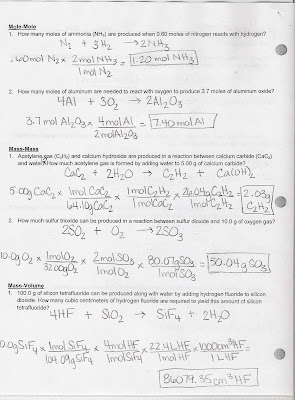 Mole-Mole
1. How many moles of ammonia (NH₃) are produced when 0.60 moles of nitrogen reacts with hydrogen?
N₂ + 3H₂ → 2NH₃
.60mol N₂ × 2mol NH₃ / 1mol N₂ = 1.20 mol NH₃
2. How many moles of aluminum are needed to react with oxygen to produce 3.7 moles of aluminum oxide?
4Al + 3O₂ → 2Al₂O₃
3.7 mol Al₂O₃ × 4mol Al / 2mol Al₂O₃ = 7.40mol Al
Mass-Mass
1. Acetylene gas (C₂H₂) and calcium hydroxide are produced in a reaction between calcium carbide (CaC₂)
and water. How much acetylene gas is formed by adding water to 5.00 g of calcium carbide?
CaC₂ + 2H₂O → C₂H₂ + Ca(OH)₂
5.00g CaC₂ × 1mol CaC₂ / 64.10g CaC₂ × 1mol C₂H₂ / 1mol CaC₂ × 26.04g C₂H₂ / 1mol C₂H₂ = 2.03g C₂H₂
2. How much sulfur trioxide can be produced in a reaction between sulfur dioxide and 10.0 g of oxygen gas?
2SO₂ + O₂ → 2SO₃
10.0g O₂ × 1mol O₂ / 32.00g O₂ × 2mol SO₃ / 1mol O₂ × 80.07g SO₃ / 1mol SO₃ = 50.04g SO₃
Mass-Volume
1. 100.0 g of silicon tetrafluoride can be produced along with water by adding hydrogen fluoride to silicon
dioxide. How many cubic centimeters of hydrogen fluoride are required to yield this amount of silicon
tetrafluoride?
4HF + SiO₂ → SiF₄ + 2H₂O
0.0g SiF₄ × 1mol SiF₄ / 104.09g SiF₄ × 4mol HF / 1mol SiF₄ × 22.4L HF / 1mol HF × 1000cm³ HF / 1L HF
86079.35 cm³ HF